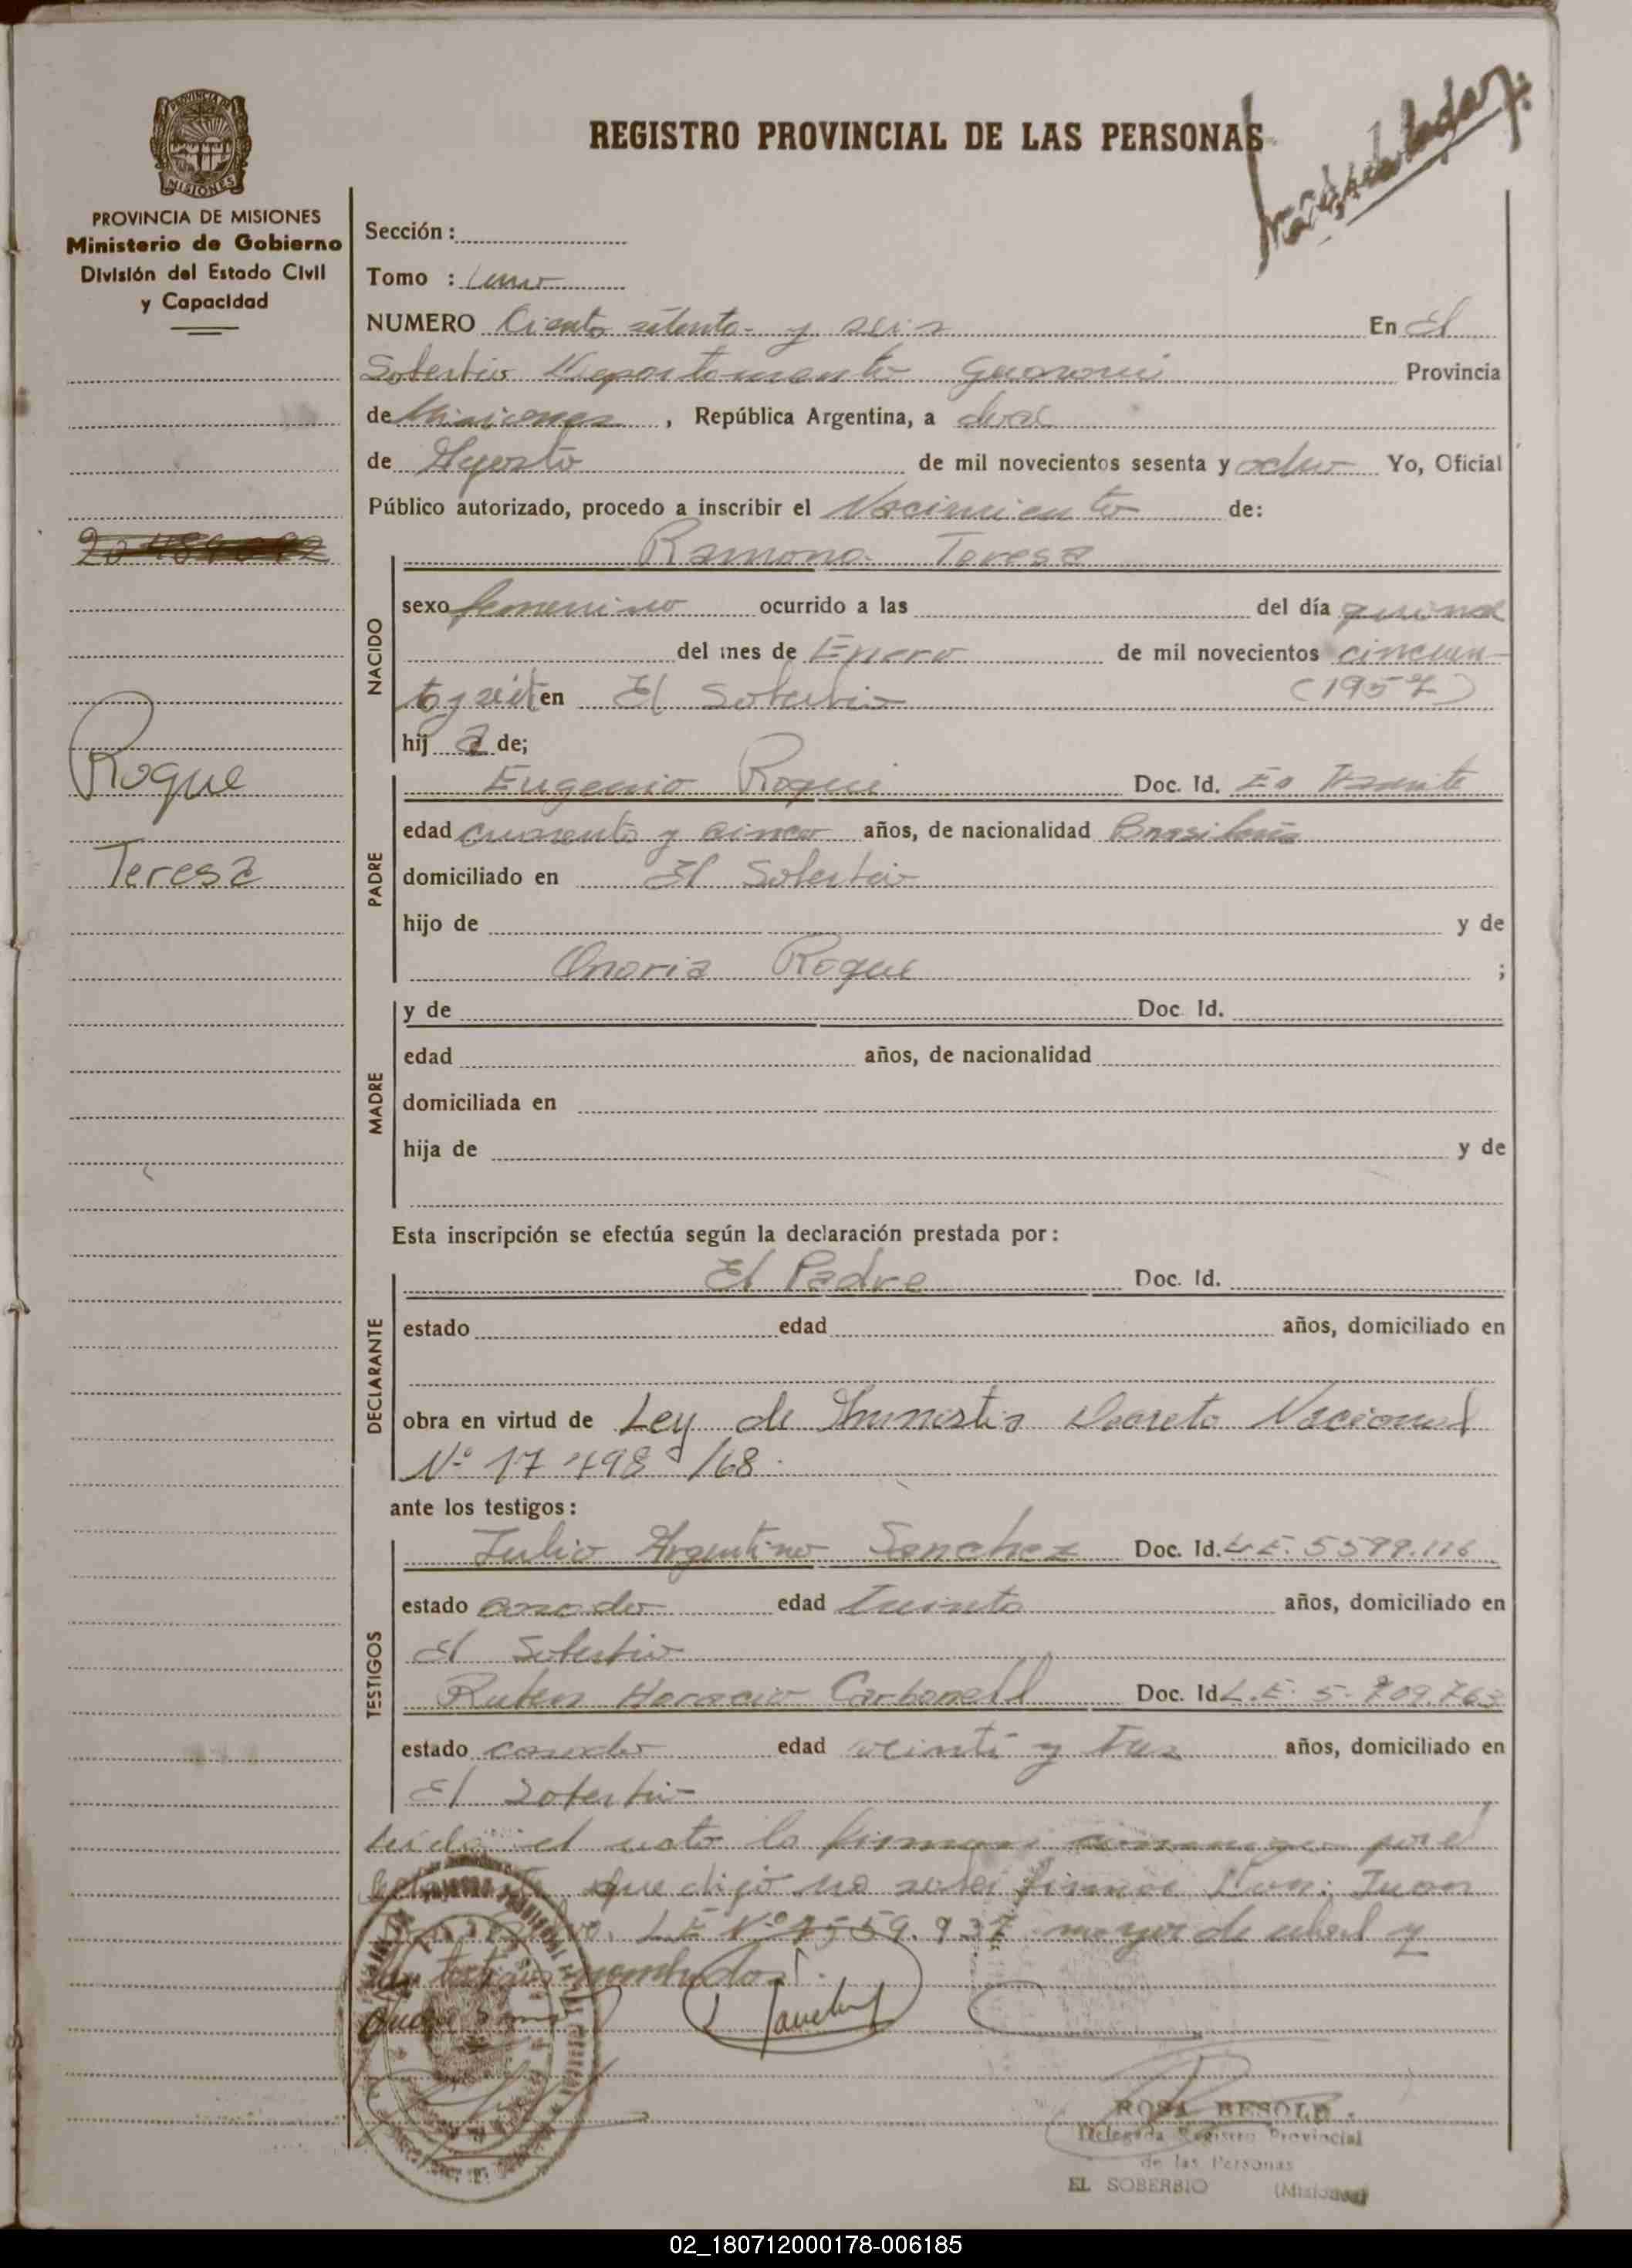 REGISTRO PROVINCIAL DE LAS PERSONAS
PROVINCIA DE MISIONES
Ministerio de Gobierno
División del Estado Civil
y Capacidad
Sección :
Tomo :
NUMERO Ciento setenta y seis En El
Soberbio Departamento Guarani Provincia
de Misiones, República Argentina, a doce
de Agosto de mil novecientos sesenta y ocho Yo, Oficial
Público autorizado, procedo a inscribir el Nacimiento de:
Ramona Teresa
NACIDO
sexo femenino ocurrido a las del día quince
del mes de Enero de mil novecientos cincuen-
ta y siete en El Soberbio (1957)
hij a de;
Roque
Teresa
PADRE
Eugenio Roque Doc. Id. En Tramite
edad cuarenta y cinco años, de nacionalidad Brasileña
domiciliado en El Soberbio
hijo de y de
Onoria Roque ;
MADRE
y de Doc. Id.
edad años, de nacionalidad
domiciliada en
hija de y de
Esta inscripción se efectúa según la declaración prestada por :
DECLARANTE
El Padre Doc. Id.
estado edad años, domiciliado en
obra en virtud de Ley de Amnistia Decreto Nacional
Nº 17 498 /68.
ante los testigos :
TESTIGOS
Julio Argentino Sanchez Doc. Id. L.E. 5599.116
estado casado edad Treinta años, domiciliado en
El Soberbio
Ruben Horacio Carbonell Doc. Id L.E. 5. 709.763
estado casado edad veinti y tres años, domiciliado en
El Soberbio
Leida el acta la firman conmigo por el
que dijo no saber firmar Don: Juan
L.E Nº 7559.937 mayor de edad y
los testigos nombrados.
ROSA BESOLD
Delegada Registro Provincial
de las Personas
EL SOBERBIO (Misiones)
02_180712000178-006185